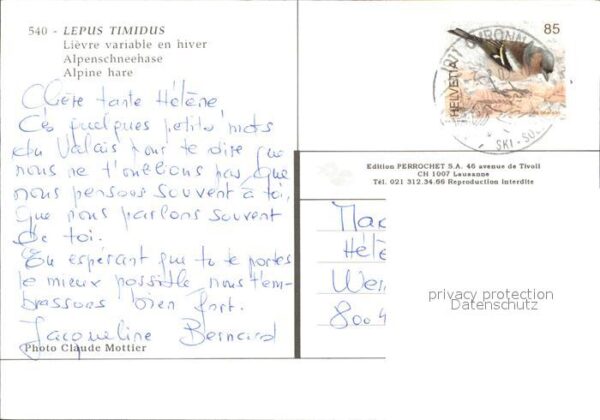 540 - LEPUS TIMIDUS
Lièvre variable en hiver
Alpenschneehase
Alpine hare
Chère tante Hélène
Ces quelques petits mots
du Valais pour te dire que
nous ne t'oublions pas, que
nous pensons souvent à toi,
que nous parlons souvent
de toi.
En espérant que tu te portes
le mieux possible, nous t'em-
brassons bien fort.
Jacqueline Bernard
Photo Claude Mottier
85
HELVETIA
SKI
Edition PERROCHET S.A. 46 avenue de Tivoli
CH 1007 Lausanne
Tél. 021 312.34.66 Reproduction interdite
Hélè
8004
privacy protection
Datenschutz